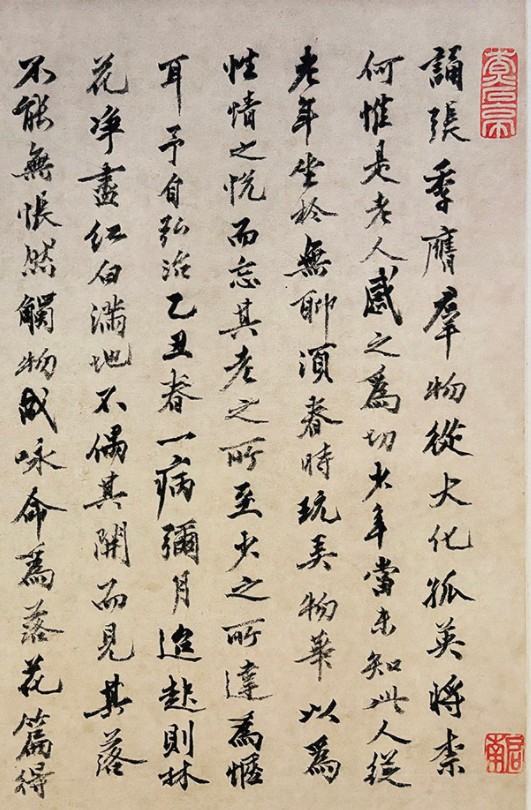 誦張季膺羣物從大化孤英將柰
何惟是老人感之爲切少年當未知此人縱
老年坐於無聊須春時玩弄物華以爲
性情之悅而忘其老之所至少之所達爲愜
耳予自弘治乙丑春一病彌月迨起則林
花淨盡紅白滿地不偶其開而見其落
不能無悵然觸物成咏命爲落花篇得